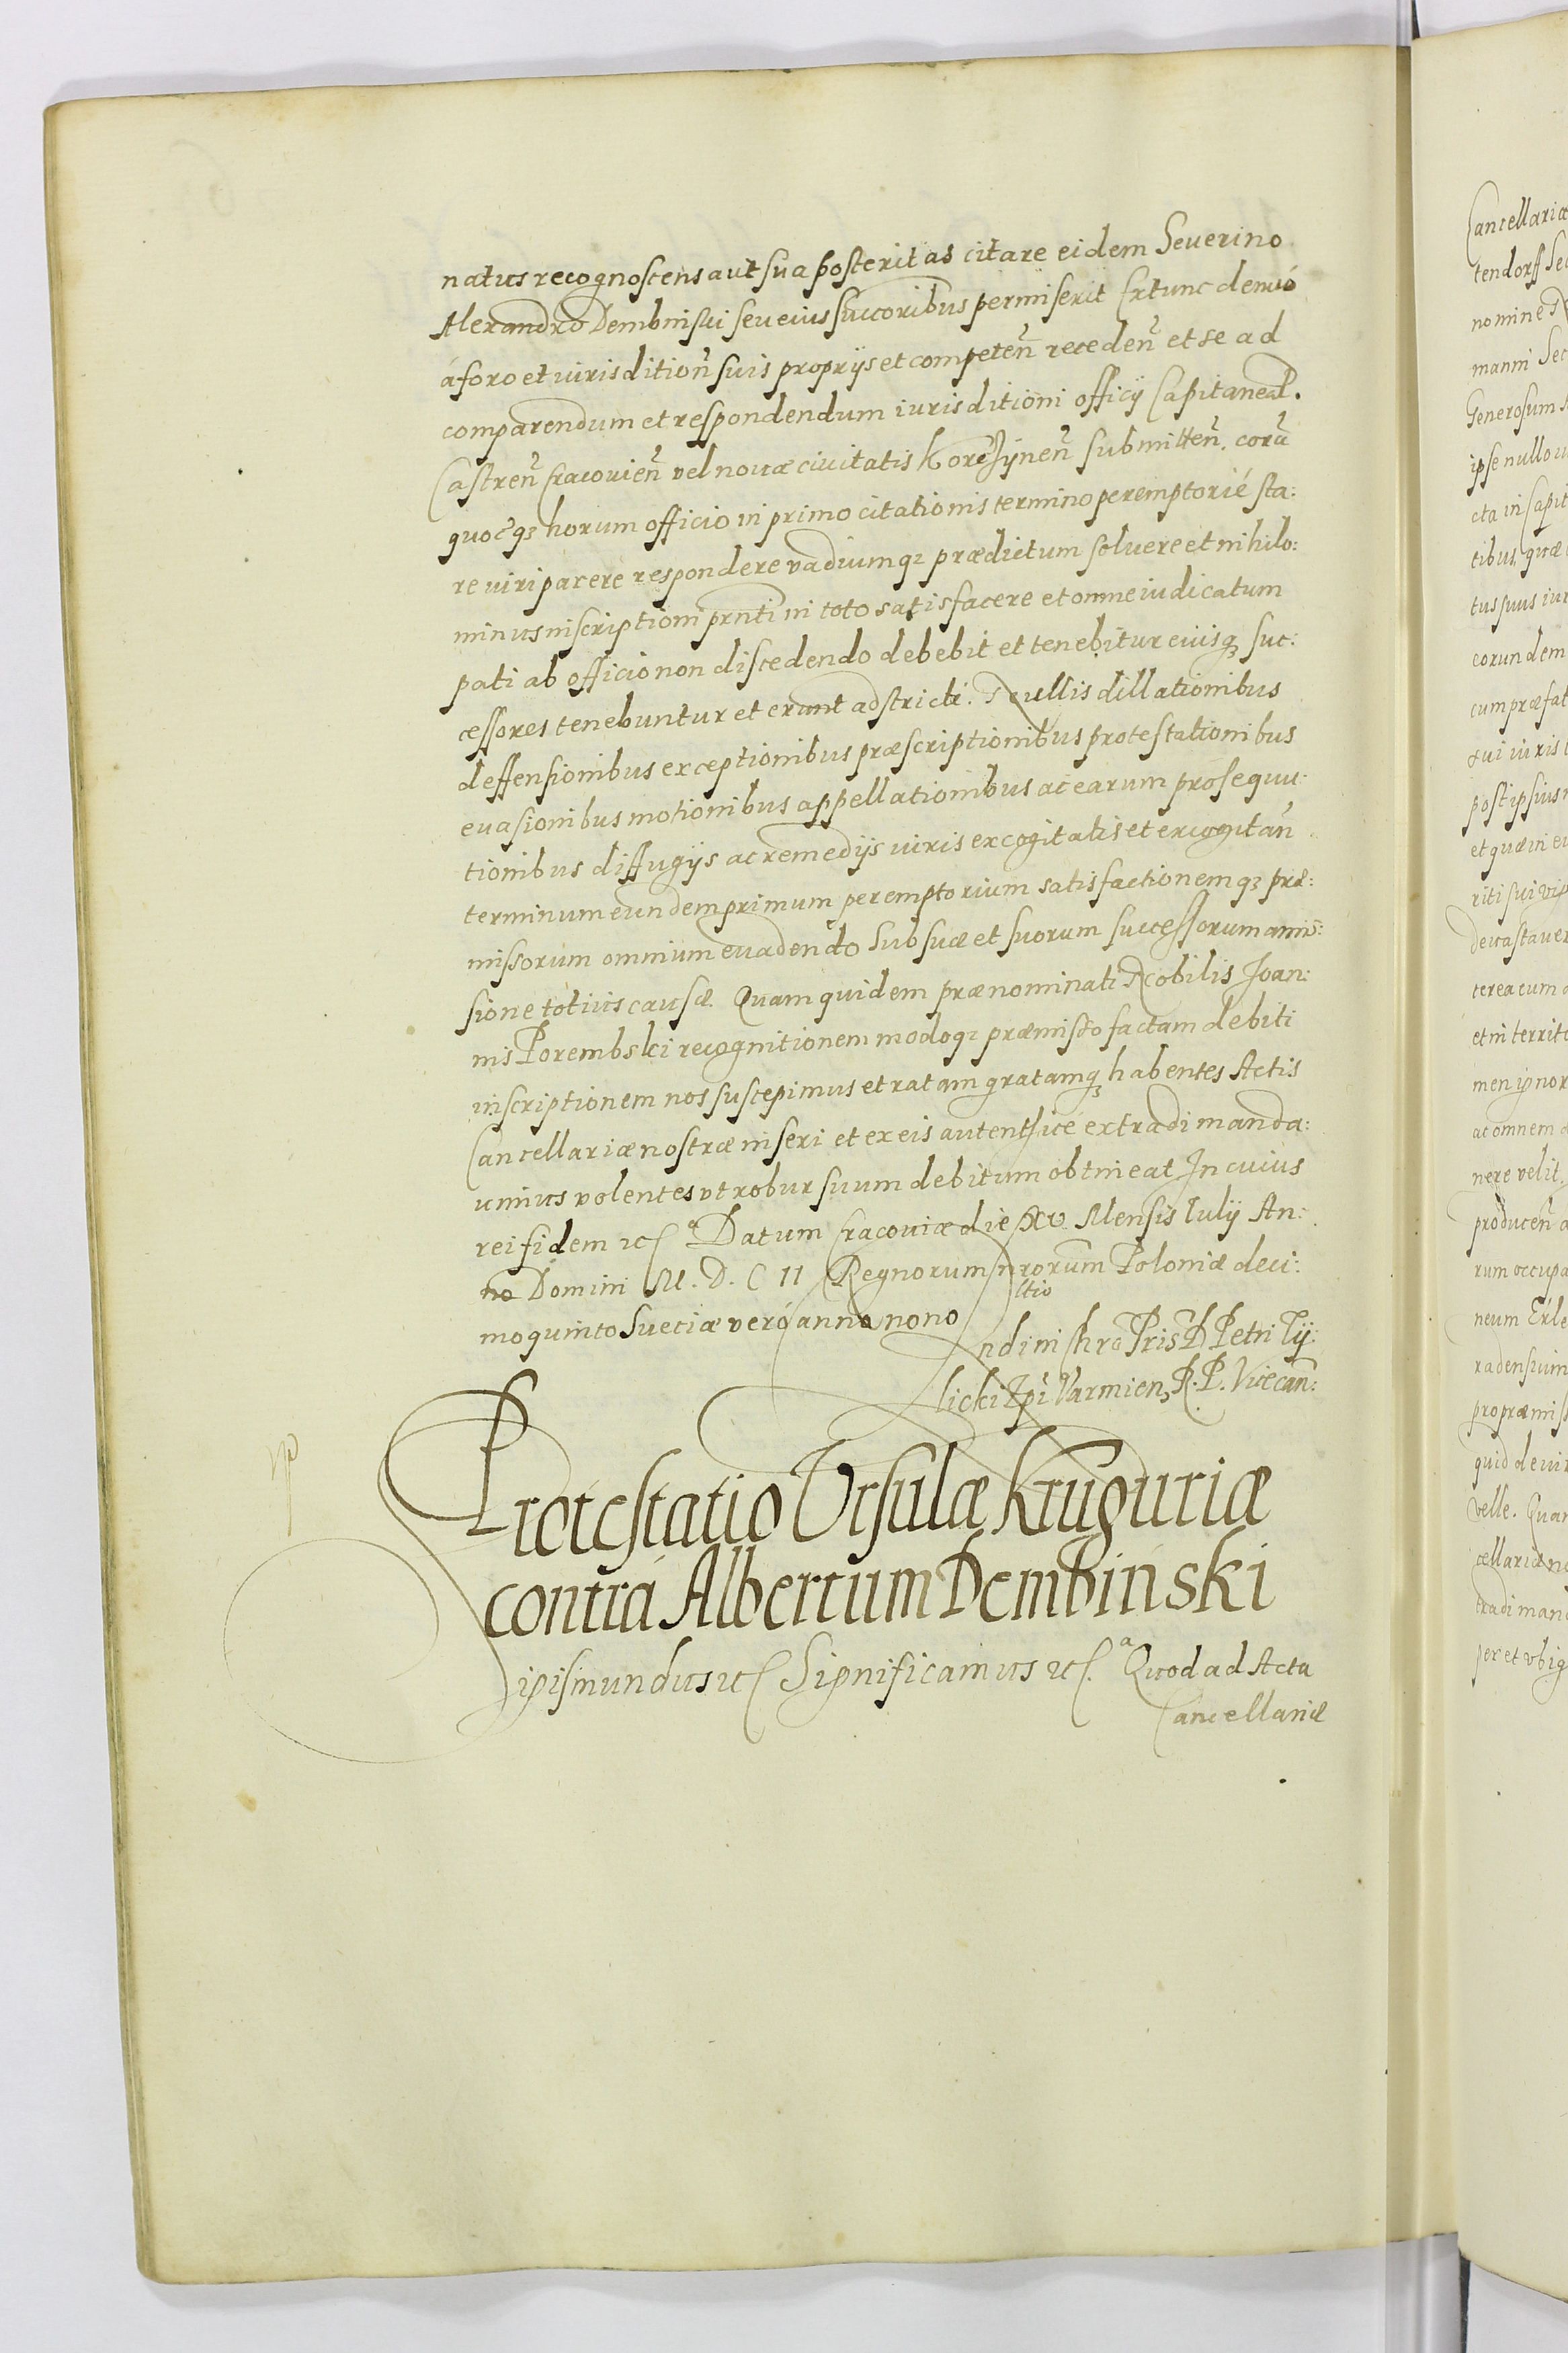 natus recognoscens aut sua posteritas citare eidem Seuerino
Alexandro Dembinski seu eius succoribus permiserit Extunc denuó
á foro et iurisdition̄ suis proprijs et competen̄ receden̄ et se ad
comparendum et respondendum iurisditioni officij Capitaneal.
Castren̄ Cracouien̄ vel nouæ ciuitatis Korczÿnen̄ submitten̄. corā
quocq3 horum officio in primo citationis termino peremptorié sta:
re iuri parere respondere vadiumq3 prædictum soluere et nihilo:
minus inscriptioni prnti in toto satisfacere et omne iudicatum
pati ab officio non discedendo debebit et tenebitur eiusq3 suc:
cessores tenebuntur et erunt adstricti. Nullis dillationibus
deffensionibus exceptionibus præscriptionibus protestationibus
euasionibus motionibus appellationibus ac earum prosequu:
tionibus diffugijs ac remedijs iuris excogitatis et excogitan̄
terminum eundem primum peremptorium satisfactionemq3 præ:
missorum omnium euadendo Sub suæ et suorum successorum amis:
sione totius causæ. Quam quidem prænominati Nobilis Joan:
nis Porembski recognitionem modoq3 præmisso factam debiti
inscriptionem nos suscepimus et ratam gratamq3 habentes Actis
Cancellariæ nostræ inseri et ex eis autenthicé extradi manda:
uimus volentes vt robur suum debitum obtineat In cuius
rei fidem etc̄ Datum Cracouiæ die XV Mensis Iulij An:
no Domini M. D. C II Regnorum nrorum Poloniæ deci:
mo quinto Sueciæ veró anno nono
ltio
ndi in Chro Pris D Petri Tÿ:
licki Epi Varmien3 R. P. Vicecan̄:
Protestatio Vrsulæ Kruguriæ
contrá Albertum Dembinski
Sigismundus etc̄ Significamus etc̄. Quod ad Acta
Cancellariæ
Cancellariæ
tendorff
nomine
manni
Generosum
ipse nullo
cta in
tibus quæ
tus suus
eorundem
cum præfat
sui iuris
post ipsius
et quæ in
riti sui
deuastauer
terea cum
et in territo
men ignor
ac omnem
nere velit.
producen̄
rum occupa
neum
radensium
pro præmis
quid de iur
velle. Quam
cellariæ no
tradi man
per et vbig